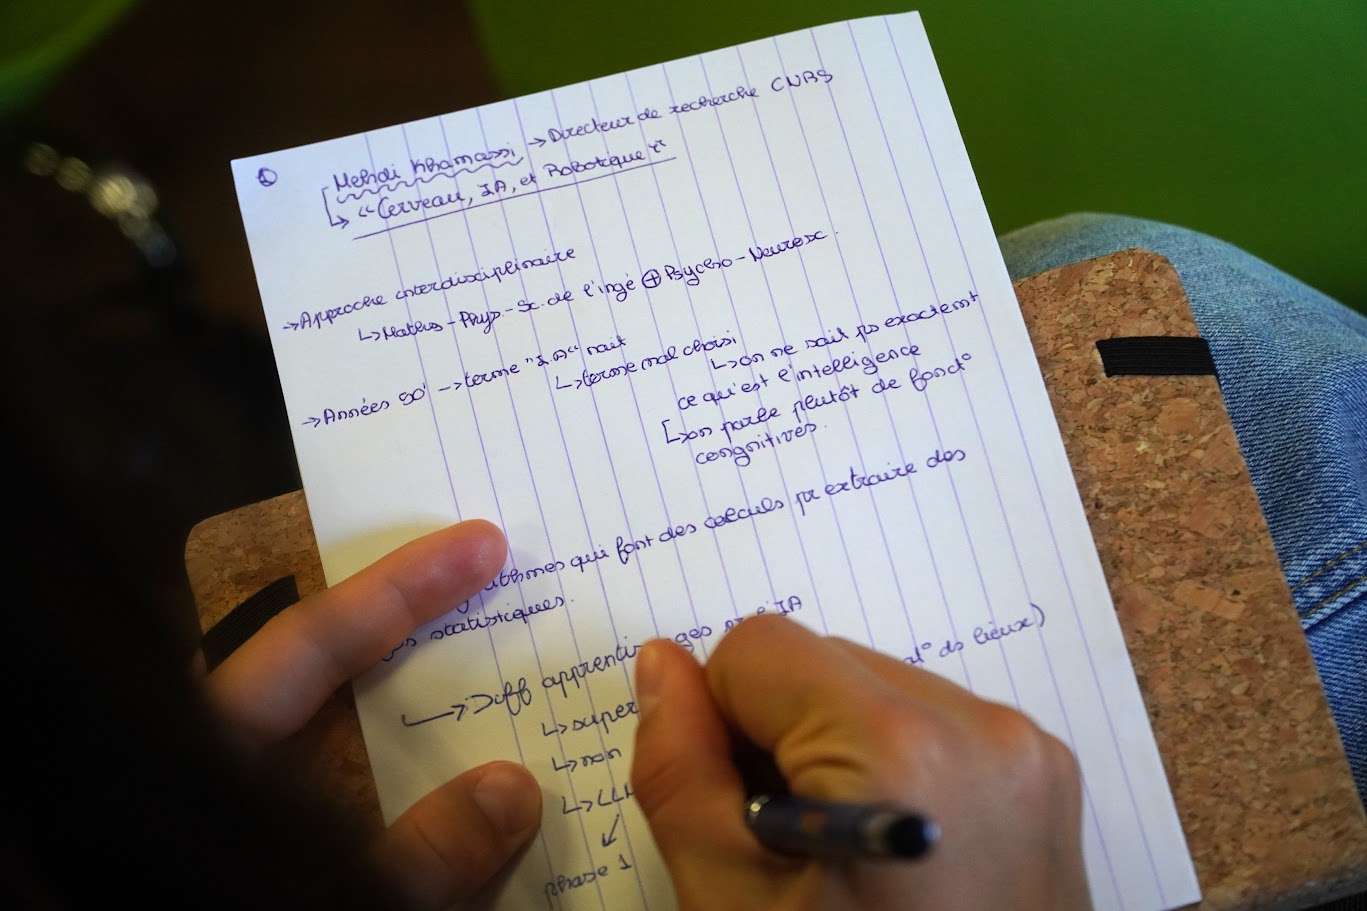 ①
Mehdi Khamassi → Directeur de recherche CNRS
↳ "Cerveau, IA, et Robotique"
→ Approche interdisciplinaire
↳ Maths - Phys. - Sc. de l'ingé ⊕ Psycho - Neurosc.
→ Années 50' → terme "I.A" nait
↳ terme mal choisi
↳ on ne sait ps exactemt
ce qu'est l'intelligence
[↳ on parle plutôt de fonct°
congnitives.
qui font des calculs pr extraire des
statistiques.
↳ Diff apprentissages pr l'IA
↳ super
ds lieux)
↳ non
↳ LLM
↓
phase 1